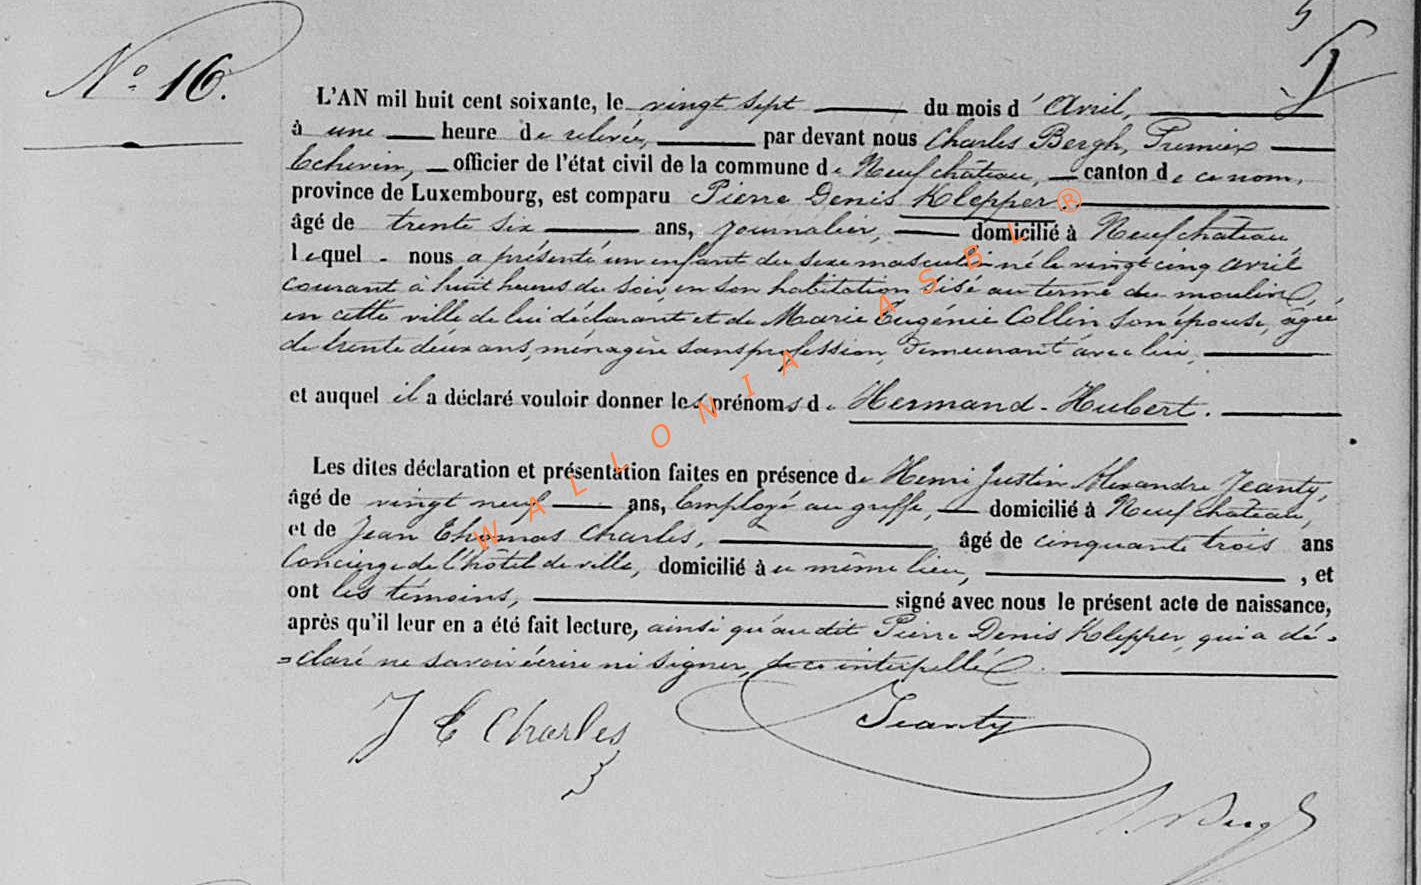 5
N° 16.
L'AN mil huit cent soixante, le vingt sept du mois d' Avril,
à une heure de relevée, par devant nous Charles Bergh, Premier
Echevin, officier de l'état civil de la commune de Neufchâteau, canton de ce nom,
province de Luxembourg, est comparu Pierre Denis Klepper,
âgé de trente six ans, journalier, domicilié à Neufchâteau
lequel nous a présenté un enfant du sexe masculin né le vingt cinq avril
courant à huit heures du soir, en son habitation sise au terme du moulin,
en cette ville de lui déclarant et de Marie Eugénie Collin son épouse, âgée
de trente deux ans, ménagère sans profession, demeurant avec lui,
et auquel il a déclaré vouloir donner les prénoms de Hermand-Hubert.
Les dites déclaration et présentation faites en présence de Henri Justin Alexandre Jeanty,
âgé de vingt neuf ans, Employé au greffe, domicilié à Neufchâteau,
et de Jean Thomas Charles, âgé de cinquante trois ans
Concierge de l'hôtel de ville, domicilié à u même lieu, , et
ont les témoins, signé avec nous le présent acte de naissance,
après qu'il leur en a été fait lecture, ainsi qu'au dit Pierre Denis Klepper, qui a dé-
=claré ne savoir écrire ni signer, de ce interpellé.
J T Charles Jeanty
Bergh
WALLONIA ASBL ®